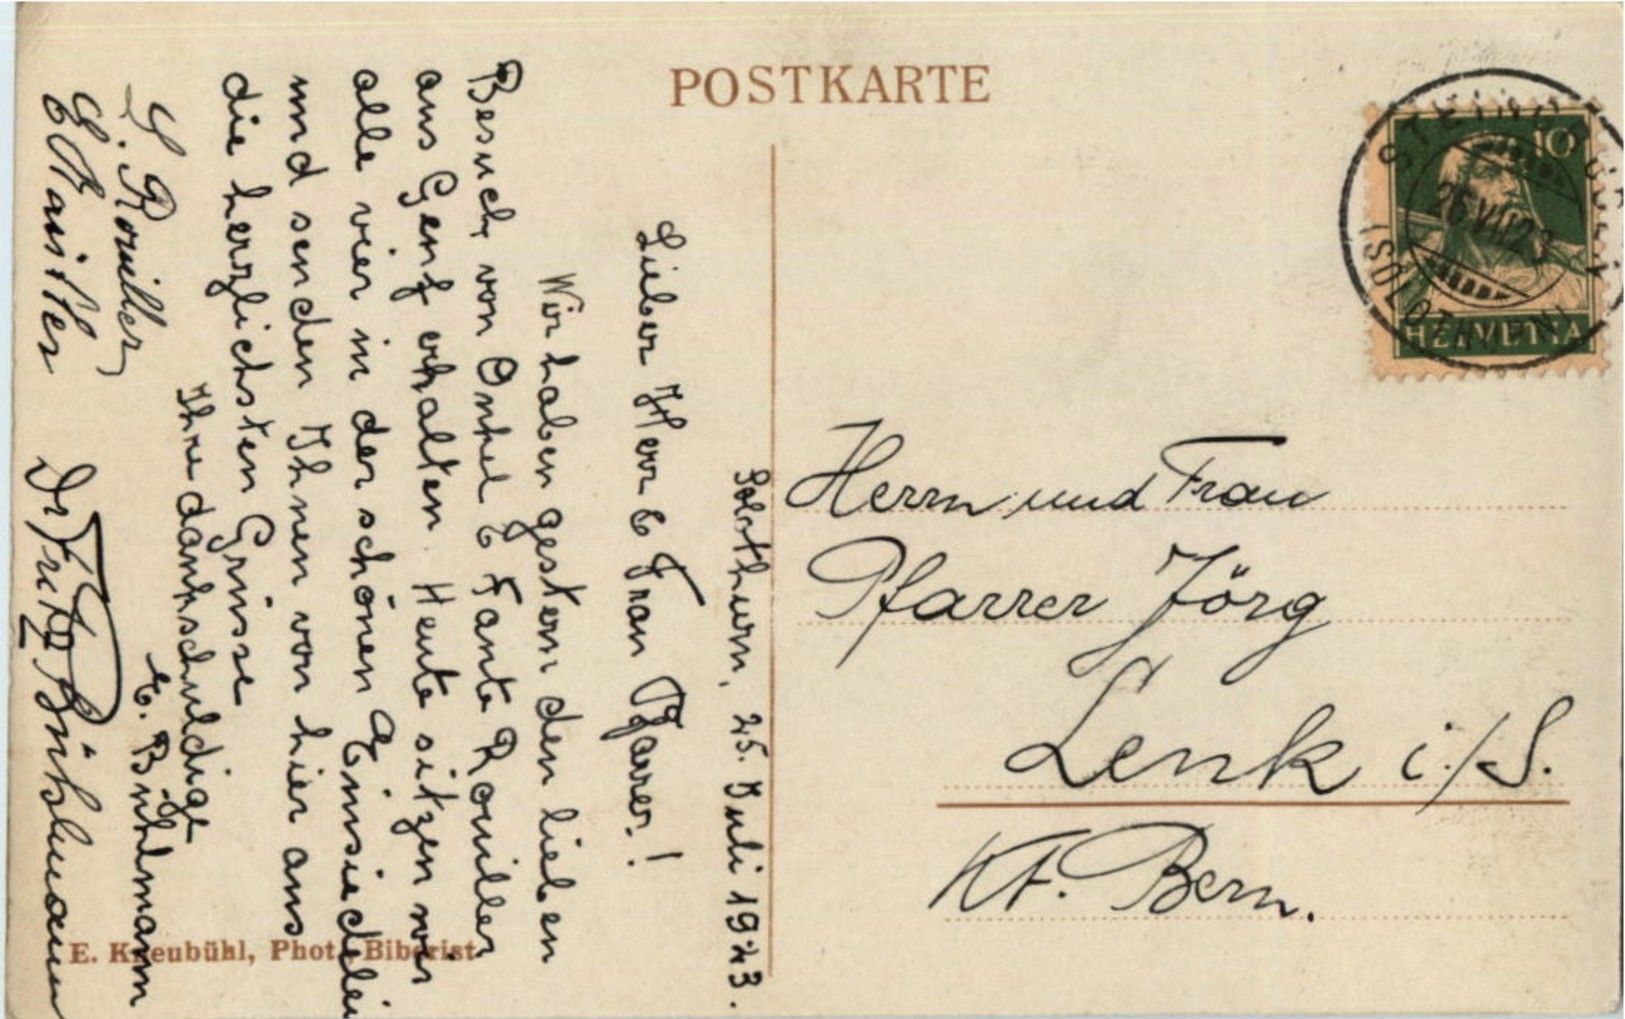 POSTKARTE
10
HELVETIA
26.VII.23
(SOLOTHURN)
Solothurn, 25. Juli 1923.
Lieber Herr & Frau Pfarrer!
Wir haben gestern den lieben
Besuch von Onkel & Tante Rouiller
aus Genf erhalten. Heute sitzen wir
alle vier in der schönen Einsiedelei
und senden Ihnen von hier aus
die herzlichsten Grüsse
Ihre dankschuldige
E. Bühlmann
Rouiller
Dr Fritz Bühlmann
Herrn und Frau
Pfarrer Jörg
Lenk i./S.
Kt. Bern.
E. Kneubühl, Phot. Biberist